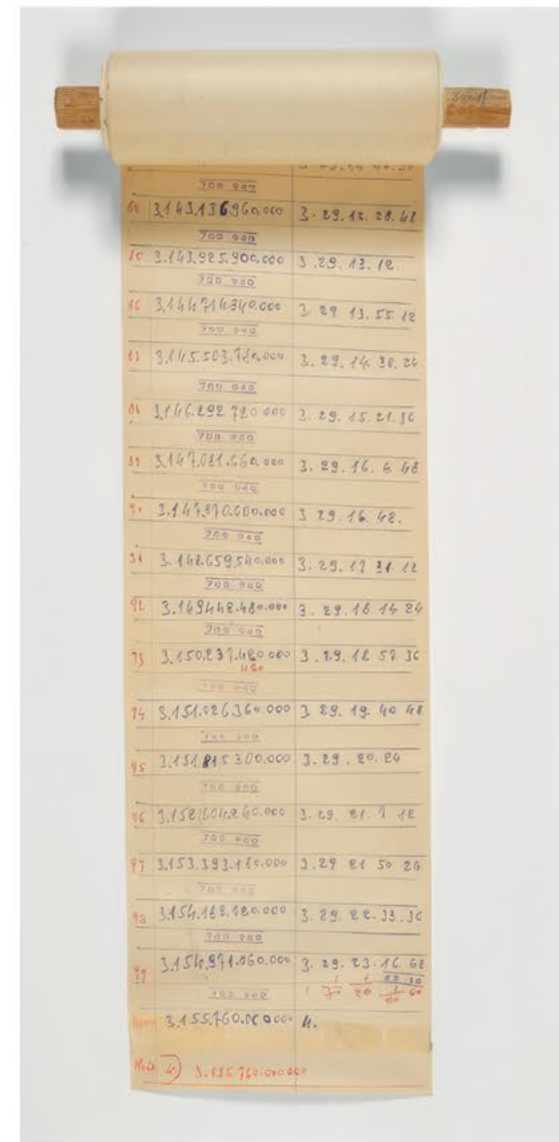 788 940
84 3.143.136.960.000 3. 29. 12. 28. 48
788 940
85 3.143.925.900.000 3. 29. 13. 12.
788 940
86 3.144.714.840.000 3. 29 13. 55. 12
788 940
87 3.145.503.780.000 3. 29. 14. 38. 24
788 940
88 3.146.292.720.000 3. 29. 15. 21. 36
788 940
89 3.147.081.660.000 3. 29. 16. 4. 48
788 940
90 3.147.870.600.000 3 29. 16. 48.
788 940
91 3.148.659.540.000 3. 29. 17 31. 12
788 940
92 3.149.448.480.000 3. 29. 18 14 24
788 940
93 3.150.237.420.000 3. 29. 18 57 36
420
788 940
94 3.151.026.360.000 3 29. 19. 40 48
788 940
95 3.151.815.300.000 3. 29. 20. 24
788 940
96 3.152.604.240.000 3. 29. 21. 7 12
788 940
97 3.153.393.180.000 3.29 21 50 24
788 940
98 3.154.182.120.000 3. 29. 22. 33. 36
788 940
99 3.154.971.060.000 3. 29. 23. 16. 48
788 940
3.155.760.000.000 4.
4) 3.155.760.000.000